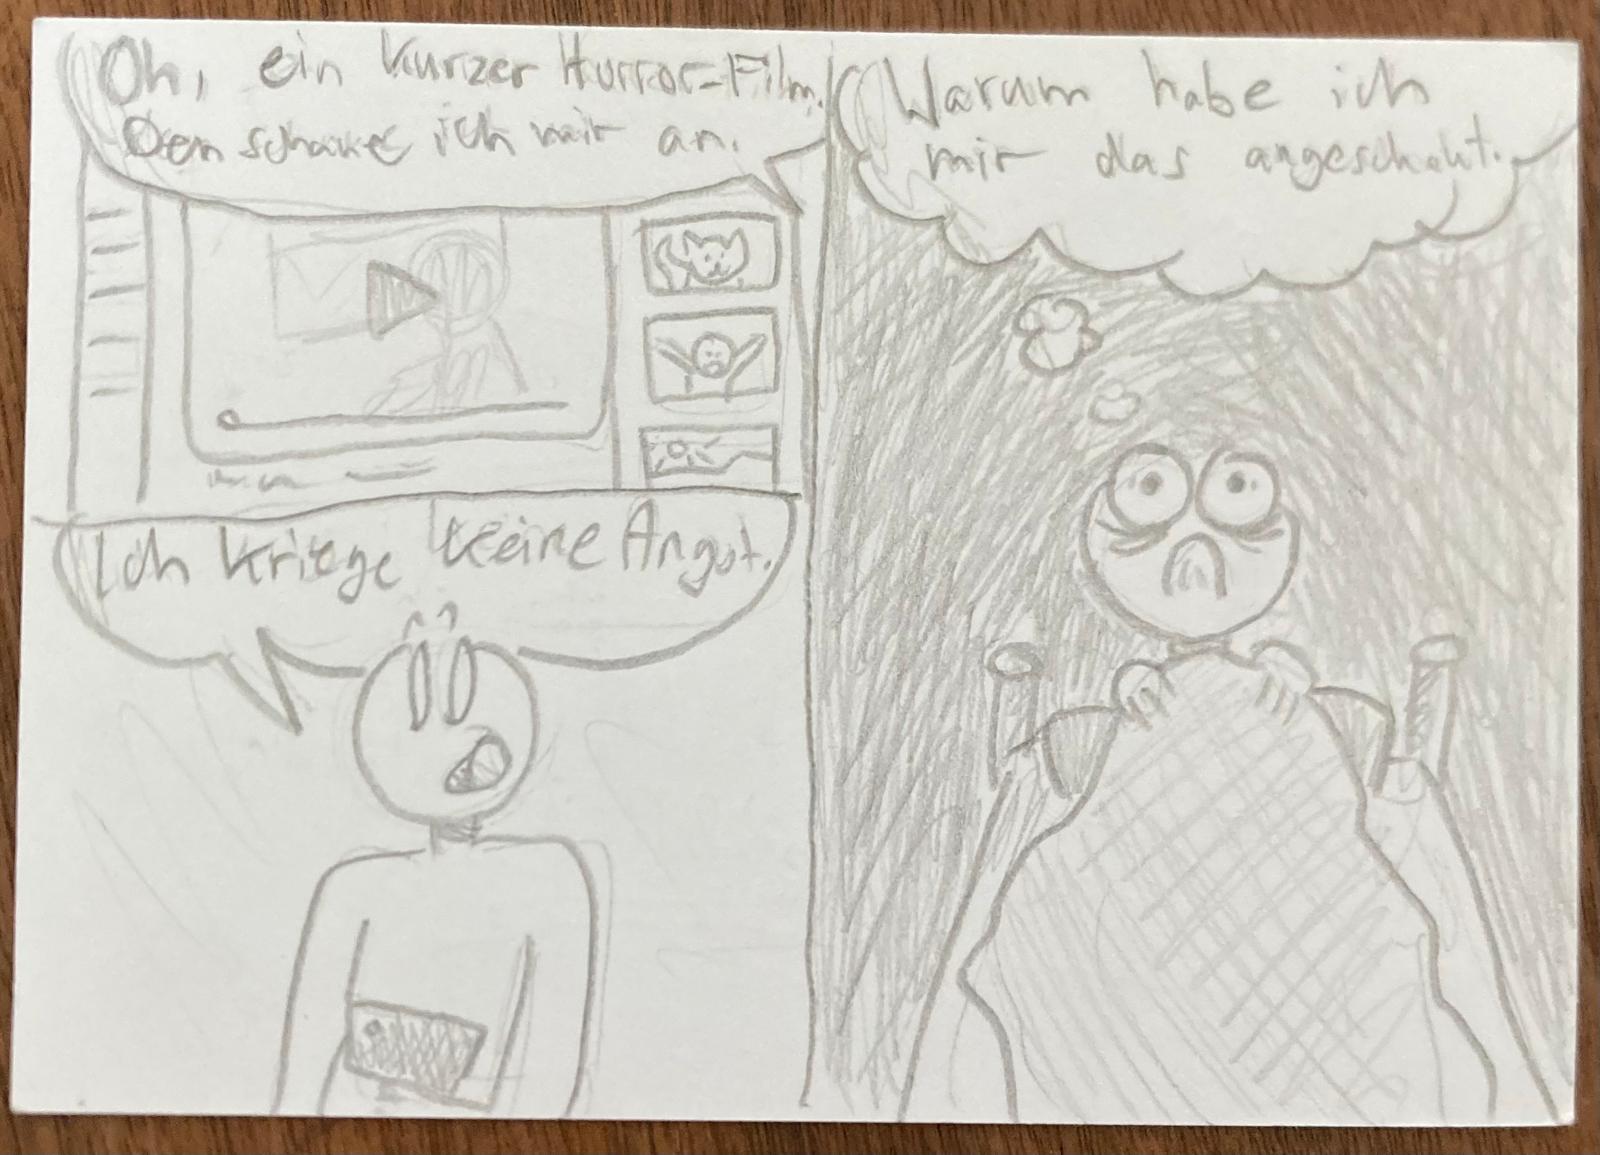 Oh, ein kurzer Horror-Film.
Den schaue ich mir an.
Ich kriege keine Angst.
Warum habe ich
mir das angeschaut.